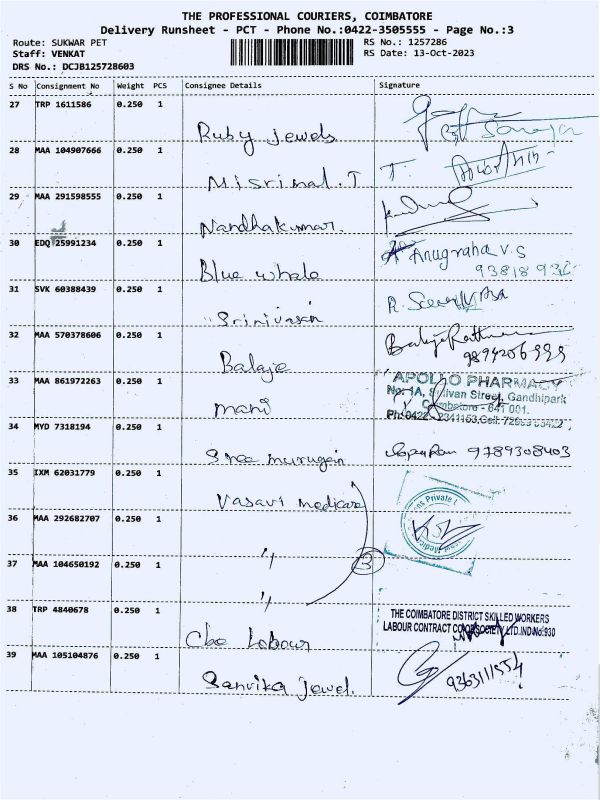 THE PROFESSIONAL COURIERS, COIMBATORE
Delivery Runsheet - PCT - Phone No.:0422-3505555 - Page No.:3
Route: SUKWAR PET
RS No.: 1257286
Staff: VENKAT
RS Date: 13-Oct-2023
DRS No.: DCJB125728603
S No Consignment No Weight PCS Consignee Details Signature
27 TRP 1611586 0.250 1
Ruby Jewels
28 MAA 104907666 0.250 1
Misrimal. T T.
29 MAA 291598555 0.250 1
Nandhakumar.
30 EDQ 25991234 0.250 1
Anugraha v.s
Blue whale
31 SVK 60388439 0.250 1
Srinivasan
32 MAA 570378606 0.250 1
Balaje
33 MAA 861972263 0.250 1
APOLLO PHARMACY
No: 1A, Sullivan Street, Gandhipark
Coimbatore - 641 001.
mani
34 MYD 7318194 0.250 1
Sree murugan 9789308403
35 IXM 62031779 0.250 1
Vasavi medicare
36 MAA 292682707 0.250 1
"
37 MAA 104650192 0.250 1
3
"
38 TRP 4840678 0.250 1
THE COIMBATORE DISTRICT SKILLED WORKERS
LABOUR CONTRACT
Cbe Labour
39 MAA 105104876 0.250 1
Sanvika Jewel. 9363111554